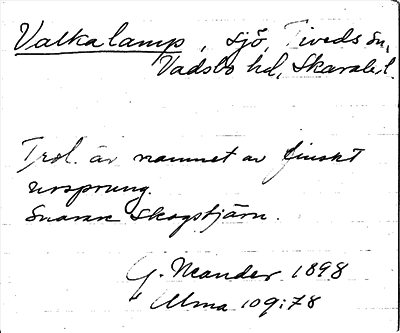 Valkalamp, sjö, Tiveds sn,
Vadsbo hd, Skarab.l.
Trol. är namnet av finskt
ursprung.
Snarare Skogstjärn.
G. Neander 1898
Alma 109:78